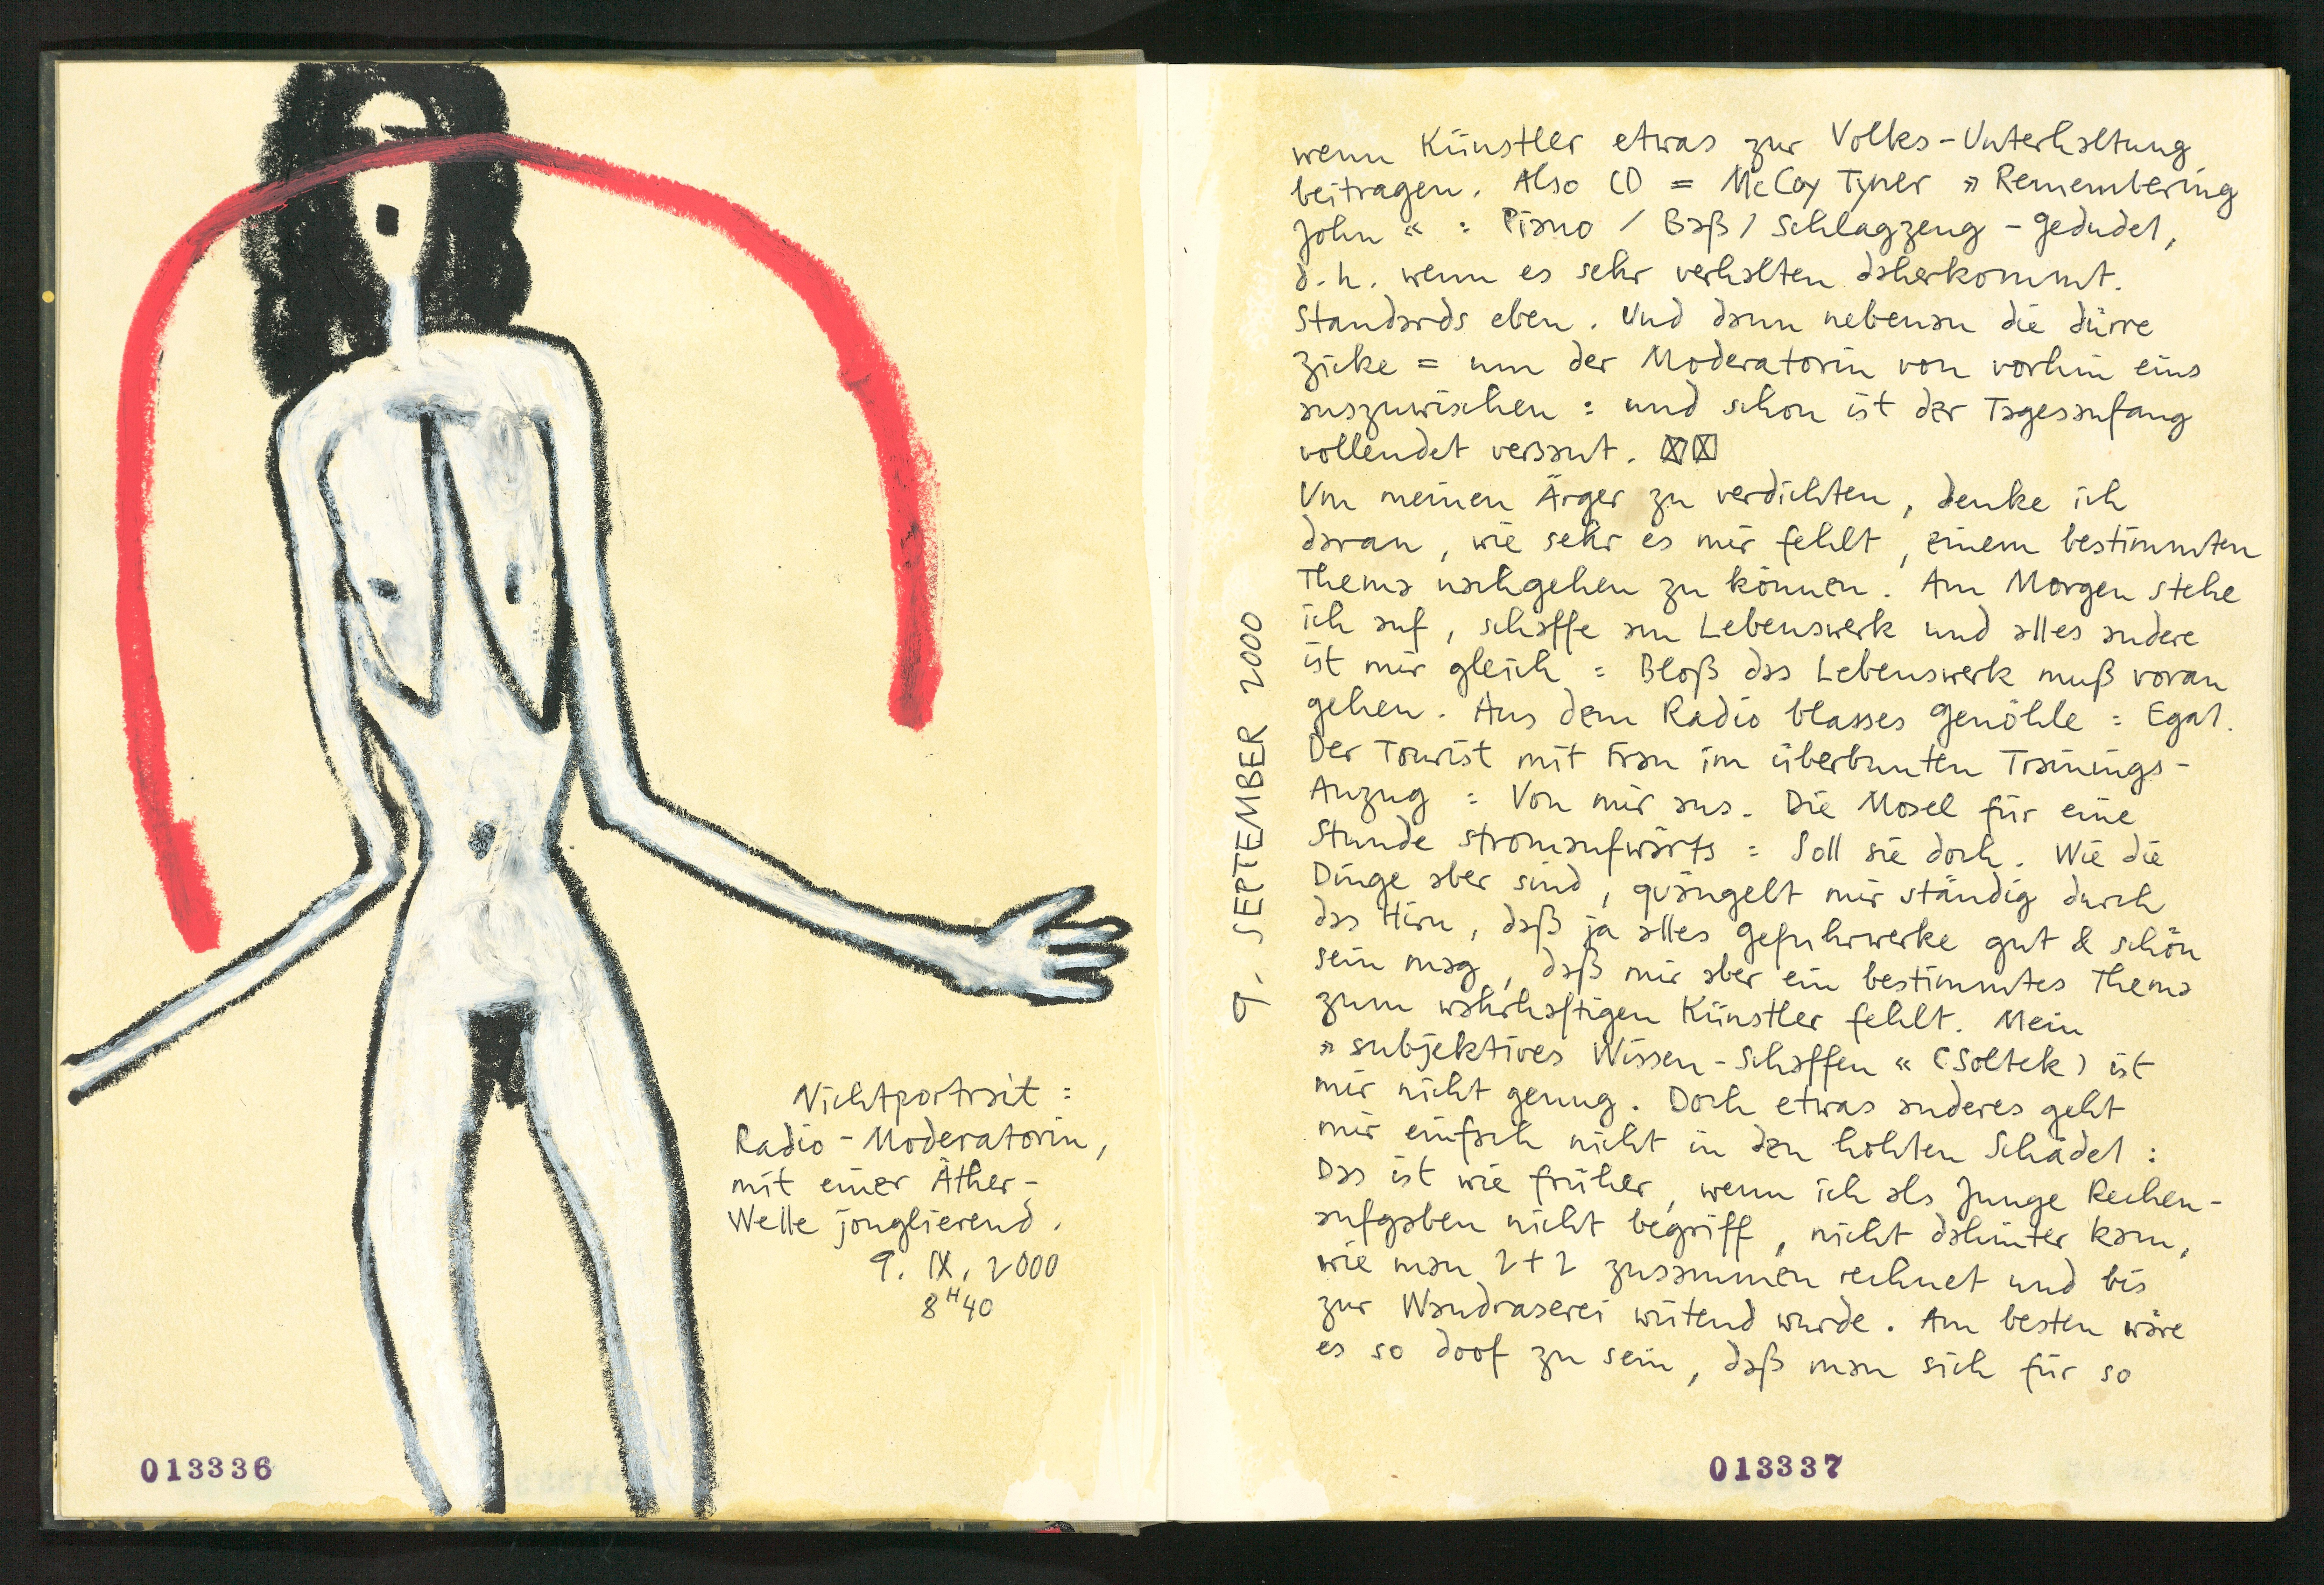 Nichtportrait =
Radio-Moderatorin,
mit einer Äther-
Welle jonglierend.
9. IX. 2000
8 H 40
013336
9. SEPTEMBER 2000
wenn Künstler etwas zur Volks-Unterhaltung
beitragen. Also CD = McCoy Tyner »Remembering
John« = Piano / Baß / Schlagzeug-Gedudel,
d.h. wenn es sehr verhalten daherkommt.
Standards eben. Und dann nebenan die dürre
Zicke = um der Moderatorin von vorhin eins
auszuwischen = und schon ist der Tagesanfang
vollendet versaut. ☒☒
Um meinen Ärger zu verdichten, denke ich
daran, wie sehr es mir fehlt, einem bestimmten
Thema nachgehen zu können. Am Morgen stehe
ich auf, schaffe am Lebenswerk und alles andere
ist mir gleich = Bloß das Lebenswerk muß voran
gehen. Aus dem Radio blasses Genöhle = Egal.
Der Tourist mit Frau im überbunten Trainings-
Anzug = Von mir aus. Die Mosel für eine
Stunde stromaufwärts = Soll sie doch. Wie die
Dinge aber sind, quängelt mir ständig durch
das Hirn, daß ja alles Gefuhrwerke gut & schön
sein mag, daß mir aber ein bestimmtes Thema
zum wahrhaftigen Künstler fehlt. Mein
»subjektives Wissen-Schaffen« (Soltek) ist
mir nicht genug. Doch etwas anderes geht
mir einfach nicht in den hohlen Schädel =
Das ist wie früher, wenn ich als Junge Rechen-
aufgaben nicht begriff, nicht dahinter kam,
wie man 2+2 zusammen rechnet und bis
zur Wandraserei wütend wurde. Am besten wäre
es so doof zu sein, daß man sich für so
013337